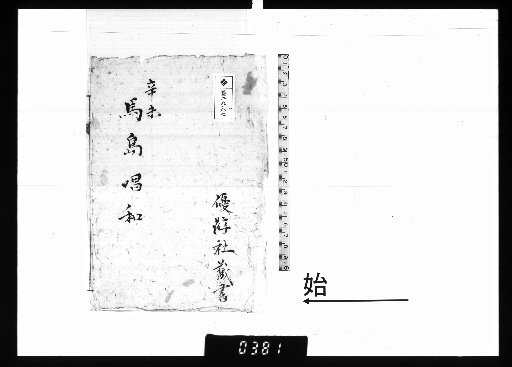 辛未
馬島唱和
優游社蔵書
始
0381